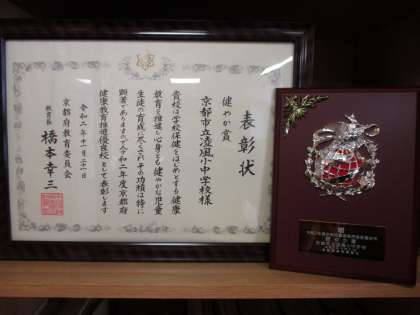 表彰状
健やか賞
京都市立凌風小中学校様
貴校は学校保健をはじめとする健康
教育を推進し心身ともに健やかな児童
生徒の育成に尽くされその功績は特に
顕著でありますので令和二年度京都府
健康教育推進優良校として表彰します
令和二年十一月二十一日
京都府教育委員会
教育長
橋本幸三